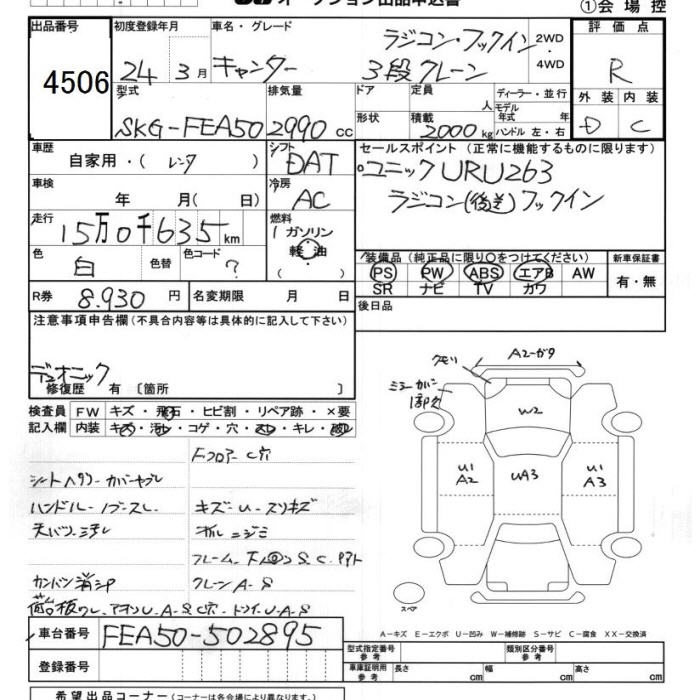 オークション出品申込書
①会場控
出品番号 4506
初度登録年月 24年 3月
車名・グレード キャンター ラジコン・フックイン 3段クレーン
2WD・4WD
評価点 R
型式 SKG-FEA50
排気量 2990 cc
ドア
形状
定員 人
積載 2000 kg
ディーラー・並行
モデル年式 年式
ハンドル 左・右
外装 D
内装 C
車歴 自家用・( レンタ )
シフト DAT
セールスポイント (正常に機能するものに限ります)
車検 年 月( 日)
冷房 AC
ユニックURU263
ラジコン(後送)フックイン
走行 15万0千635km
燃料 ガソリン・軽油・( )
色 白
色替
色コード ?
装備品 (純正品に限り○をつけてください)
PS PW ABS エアB AW
SR ナビ TV カワ
新車保証書 有・無
R券 8.930 円
名変期限 月 日
後日品
注意事項申告欄 (不具合内容等は具体的に記入して下さい)
デュオニック
修復歴 有 〔箇所 〕
検査員記入欄
FW キズ・飛石・ヒビ割・リペア跡・×要
内装 キズ・汚レ・コゲ・穴・スレ・キレ・破レ
Fフロアー C穴
シートヘタリ・カバーヤブレ
ハンドル・ノブスレ
キズ・U・スリキズ
天バリ・ヨゴレ
オイルニジミ
フレーム・下廻りS.C.アト
カンバン消シ
クレーンA-S
荷台板ワレ、アオリU-A-S C穴・ドライU-A-S
クモリ
A2-ガタ
ミラーカバー 1部欠
W2
U1
A2
UA3
U1
A3
スペア
A-キズ E-エクボ U-凹み W-補修跡 S-サビ C-腐食 XX-交換済
車台番号 FEA50-502895
登録番号
型式指定番号 参考
類別区分番号 参考
車庫証明用 参考
長さ cm
幅 cm
高さ cm
希望出品コーナー (コーナーは各会場により異なります)